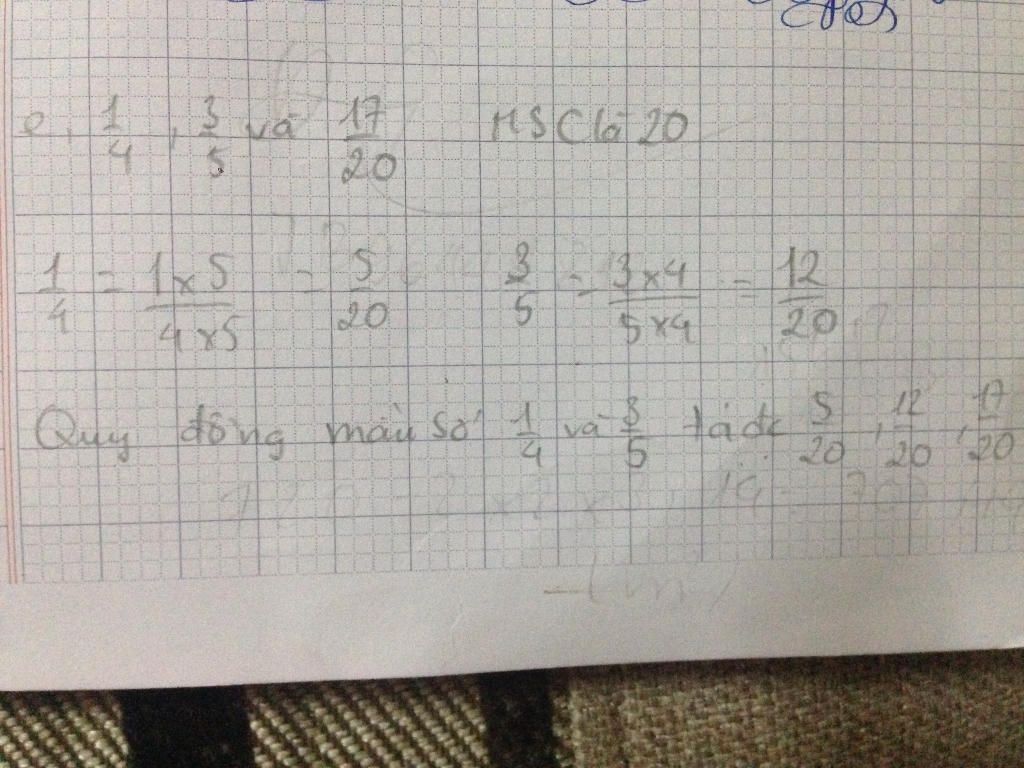 e, 1/4, 3/5 và 17/20 MSC là 20
1/4 = 1x5/4x5 = 5/20 3/5 = 3x4/5x4 = 12/20
Quy đồng mẫu số 1/4 và 3/5 ta đc 5/20, 12/20, 17/20